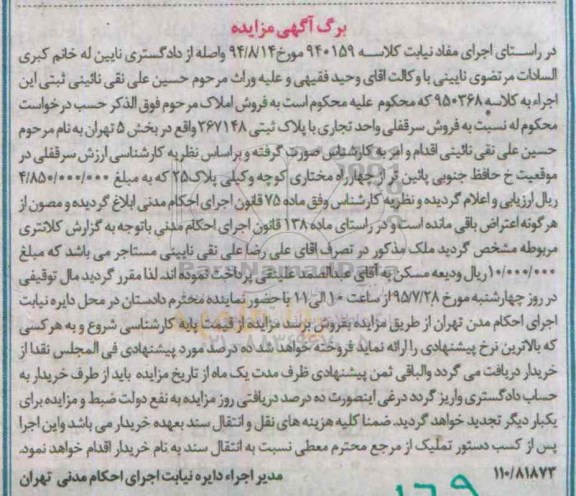 برگ آگهی مزایده
در راستای اجرای مفاد نیابت کلاسه ۹۴۰۱۵۹ مورخ ۹۴/۸/۱۴ واصله از دادگستری نایین له خانم کبری
السادات مرتضوی نایینی با وکالت اقای وحید فقیهی و علیه وراث مرحوم حسین علی نقی نائینی ثبتی این
اجراء به کلاسه ۹۵۰۳۶۸ که محکوم علیه محکوم است به فروش املاک مرحوم فوق الذکر حسب درخواست
محکوم له نسبت به فروش سرقفلی واحد تجاری با پلاک ثبتی ۳۶۷۱۴۸ واقع در بخش ۵ تهران به نام مرحوم
حسین علی نقی نائینی اقدام و امر به کارشناس صورت گرفته و براساس نظریه کارشناسی ارزش سرقفلی در
موقعیت خ حافظ جنوبی پائین تر از چهارراه مختاری کوچه وکیلی پلاک ۲۵ که به مبلغ ۴/۸۵۰/۰۰۰/۰۰۰
ریال ارزیابی و اعلام گردیده و نظریه کارشناس وفق ماده ۷۵ قانون اجرای احکام مدنی ابلاغ گردیده و مصون از
هرگونه اعتراض باقی مانده است و در راستای ماده ۱۳۸ قانون اجرای احکام مدنی باتوجه به گزارش کلانتری
مربوطه مشخص گردید ملک مذکور در تصرف اقای علی رضا علی نقی نایینی مستاجر می باشد که مبلغ
۱۰/۰۰۰/۰۰۰ ریال ودیعه مسکن به آقای عبدالصمد علینقی پرداخت نموده اند. لذا مقرر گردید مال توقیفی
در روز چهارشنبه مورخ ۹۵/۷/۲۸ از ساعت ۱۰ الی ۱۱ با حضور نماینده محترم دادستان در محل دایره نیابت
اجرای احکام مدن تهران از طریق مزایده بفروش برسد مزایده از قیمت پایه کارشناسی شروع و به هر کسی
که بالاترین نرخ پیشنهادی را ارائه نماید فروخته خواهد شد ده درصد مورد پیشنهادی فی المجلس نقدا از
خریدار دریافت می گردد والباقی ثمن پیشنهادی ظرف مدت یک ماه از تاریخ مزایده باید از طرف خریدار به
حساب دادگستری واریز گردد درغی اینصورت ده درصد دریافتی روز مزایده به نفع دولت ضبط و مزایده برای
یکبار دیگر تجدید خواهد گردید. ضمنا کلیه هزینه های نقل و انتقال سند بعهده خریدار می باشد واین اجرا
پس از کسب دستور تملیک از مرجع محترم معطی نسبت به انتقال سند به نام خریدار اقدام خواهد نمود.
۱۱۰/۸۱۸۷۳ مدیر اجراء دایره نیابت اجرای احکام مدنی تهران
۱۶۹